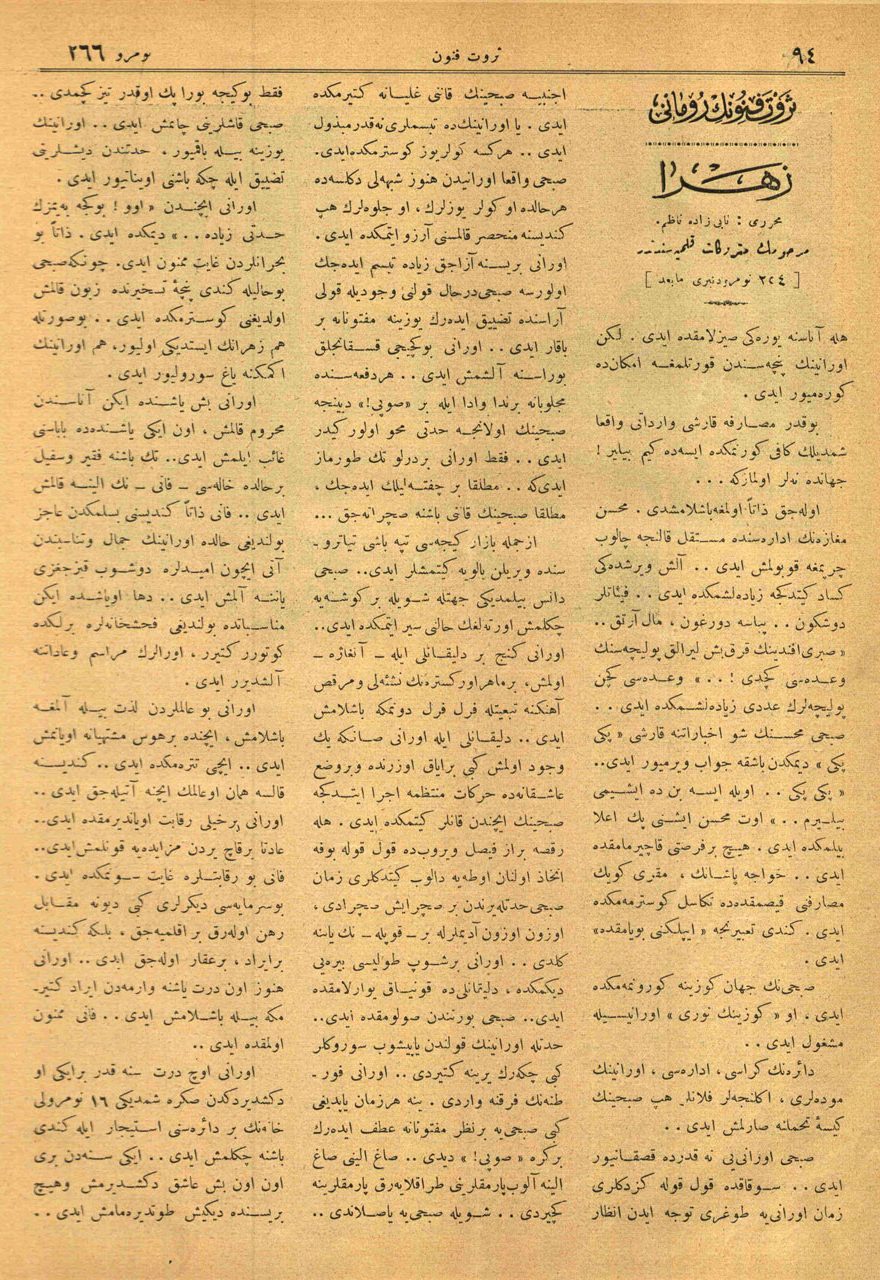 ٩٤
ثروت فنون
نومرو ٢٦٦
ثروت فنونك رومانی
زهرا
محرری : نابی زاده ناظم.
مرحومك متروكات قلمیه سندندر
[ ٢٢٤ نومرودنبری مابعد ]
هله آناسنه یوره كی صیزلامقده ایدی . لكن
اورانینك پنچه سندن قورتلمغه امكان ده
كوره میور ایدی .
بوقدر مصارفه قارشی وارداتی واقعا
شمدیلك كافی كورنمكده ایسه ده كیم بیلیر !
جهانده نه لر اولمازكه . . .
اوله جق ذاتاً اولمغه باشلامشدی . محسن
مغازه نك اداره سنده مستقل قالنجه چالوب
چرپمغه قویولمش ایدی . . آلش ویرشده كی
كساد كیتدكجه زیاده لشمكده ایدی . . فیئاتلر
دوشكون . . پیاسه دورغون ، مال آرتق . .
« صبری افندینك قرق بش لیرالق پولیچه سنك
وعده سی كچدی ! . . » وعده سی كچن
پولیچه لرك عددی زیاده لشمكده ایدی . .
صبحی محسنك شو اخباراتنه قارشی « پكی
پكی » دیمكدن باشقه جواب ویرمیور ایدی..
« پكی پكی . . اویله ایسه بن ده ایشیمی
بیلیرم . . » اوت محسن ایشنی پك اعلا
بیلمكده ایدی . هیچ بر فرصتی قاچیرمامقده
ایدی . . خواجه پاشانك ، مقری كویك
مصارفی قیصمقده ده تكاسل كوسترمه مكده
ایدی . كندی تعبیرنجه « ایپلكنی بویامقده»
ایدی .
صبحی نك جهان كوزینه كورونمه مكده
ایدی . او « كوزینك نوری » اورانیسیله
مشغول ایدی . .
دائره نك كراسی ، اداره سی ، اورانینك
موده لری ، اكلنجه لر فلانلر هپ صبحینك
كیسهٔ تحملنه صارلمش ایدی . .
صبحی اورانی یی نه قدرده قصقانیور
ایدی . . سوقاقده قول قوله كزدكلری
زمان اورانی یه طوغری توجه ایدن انظار
اجنبیه صبحینك قاننی غلیانه كتیرمكده
ایدی . یا اورانینك ده تبسملری نه قدر مبذول
ایدی . . هركسه كولریوز كوسترمكده ایدی.
صبحی واقعا اورانیدن هنوز شبهه لی دكلسه ده
هرحالده او كولر یوزلرك ، او جلوه لرك هپ
كندیسنه منحصر قالمسنی آرزو ایتمكده ایدی .
اورانی بریسنه آزاجق زیاده تبسم ایده جك
اولورسه صبحی درحال قولنی وجودیله قولی
آراسنده تضییق ایده رك یوزینه مفتونانه بر
باقار ایدی . . اورانی بوكیجی قسقانجلق
بوراسنه آلشمش ایدی . . هردفعه سنده
مجلوبانه برندا وادا ایله بر «صوبی!» دیینجه
صبحینك اولانجه حدتی محو اولور كیدر
ایدی . . فقط اورانی بردرلو تك طورماز
ایدی كه . . مطلقا بر چفته لیلك ایده جك ،
مطلقا صبحینك قانی باشنه صچرانه جق ...
ازجمله بازار كیجه سی تپه باشی تیاترو ـ
سنده ویریلن بالویه كتمشلر ایدی.. صبحی
دانس بیلمدیكی جهتله شویله بر كوشه یه
چكلمش اورته لغك حالنی سیر ایتمكده ایدی..
اورانی كنج بر دلیقانلی ایله ـ آنغاژه ـ
اولمش، برماهر اوركستره نك نشئه لی ومرقص
آهنكنه تبعیتله فرل فرل دونمكه باشلامش
ایدی . . دلیقانلی ایله اورانی صانكه یك
وجود اولمش كبی برایاق اوزرنده وبروضع
عاشقانه ده حركات منتظمه اجرا ایتدكجه
صبحینك ایچندن قانلر كیتمكده ایدی . هله
رقصه براز فیصل ویروب ده قول قوله بوفه
اتخاذ اولنان اوطه یه دالوب كیتدكلری زمان
صبحی حدتله یرندن بر صچرایش صچرادی ،
اوزون اوزون آدیملرله بر ـ قوپله ـ نك یاننه
كلدی . . اورانی برشوپ طولیسی بیره یی
دیكمكده ، دلیقانلی ده قونیاق یوارلامقده
ایدی.. صبحی بورنندن صولومقده ایدی..
حدتله اورانینك قولندن یاپیشوب سوروكلر
كبی چكه رك یرینه كتیردی . . اورانی فور ـ
طنه نك فرقنه واردی . ینه هرزمان یاپدیغی
كبی صبحی یه برنظر مفتونانه عطف ایده رك
بركره «صوبی!» دیدی . . صاغ الینی صاغ
الینه آلوب پارمقلرینی طراقلایه رق پارمقلرینه
كچیردی . . شویله صبحی یه یاصلاندی . .
فقط بوكیجه بورا پك اوقدر تیز كچمدی . .
صبحی قاشلرینی چاتمش ایدی . . اورانینك
یوزینه بیله باقمیور . حدتندن دیشلرینی
تضییق ایله چكه باشنی اویناتیور ایدی .
اورانی ایچندن « اوو ! بوكیجه به یمزك
حدتی زیاده . . » دیمكده ایدی . ذاتاً بو
بحرانلردن غایت ممنون ایدی. چونكه صبحی
بوحالیله كندی پنچهٔ تسخیرنده زبون قالمش
اولدیغنی كوسترمكده ایدی . . بوصورتله
هم زهرانك ایستدیكی اولیور، هم اورانینك
اكمكنه یاغ سورولیور ایدی .
اورانی بش یاشنده ایكن آناسندن
محروم قالمش ، اون ایكی یاشنده ده باباسی
غائب ایلمش ایدی.. تك باشنه فقیر وسفیل
برحالده خاله سی ـ فانی ـ نك الینه قالمش
ایدی . . فانی ذاتاً كندیسنی بسلمكدن عاجز
بولندیغی حالده اورانینك جمال وتناسبندن
آتی ایچون امیدلره دوشوب قیزجغزی
یاننه آلمش ایدی . . دها اویاشده ایكن
مناسباتده بولندیغی فحشخانه لره برلكده
كوتورر كتیرر ، اورالرك مراسم وعاداتنه
آلشدیرر ایدی .
اورانی بو عالملردن لذت بیله آلمغه
باشلامش ، ایچنده برهوس مشتهیانه اویانمش
ایدی . . ایچی تتره مكده ایدی . . كندیسنه
قالسه همان اوعالمك ایچنه آتیله جق ایدی . .
اورانی برخیلی رقابت اویاندیرمقده ایدی..
عادتا برقاچ یردن مزایده یه قونلمش ایدی..
فانی بو رقابتلره غایت سونمكده ایدی .
بوسرمایه سی دیكرلری كبی دیونه مقابل
رهن اوله رق براقلمیه جق ، بلكه كندیسنه
برایراد ، برعقار اوله جق ایدی . . اورانی
هنوز اون درت یاشنه وارمه دن ایراد كتیر ـ
مكه بیله باشلامش ایدی . . فانی ممنون
اولمقده ایدی ..
اورانی اوچ درت سنه قدر برایكی او
دكشدیردكدن صكره شمدیكی ١٦ نومرولی
خانه نك بر دائره سنی استیجار ایله كندی
باشنه چكلمش ایدی . . ایكی سنه دن بری
اون اون بش عاشق دكشدیرمش وهیچ
بریسنده دیكیش طوندیره مامش ایدی . .